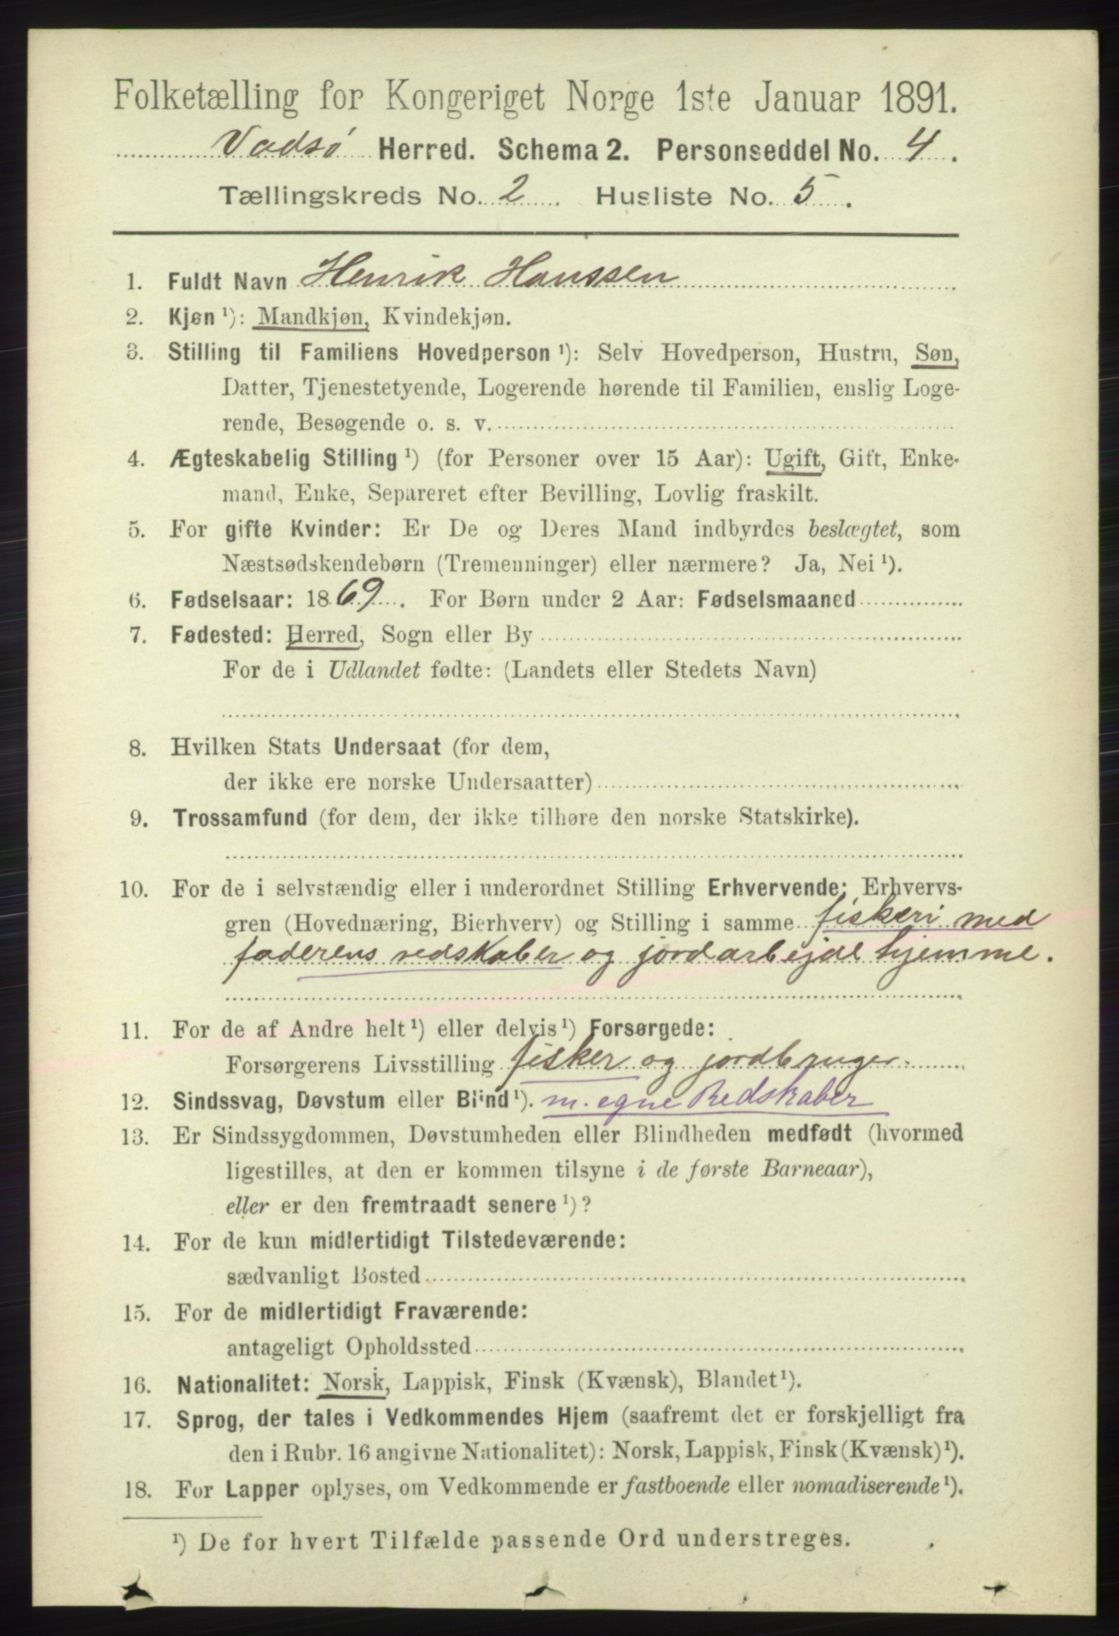 Folketælling for Kongeriget Norge 1ste Januar 1891.
Vadsø Herred. Schema 2. Personseddel No. 4.
Tællingskreds No. 2. Husliste No. 5.
1. Fuldt Navn Henrik Hanssen
2. Kjøn ¹): Mandkjøn, Kvindekjøn.
3. Stilling til Familiens Hovedperson ¹): Selv Hovedperson, Hustru, Søn,
Datter, Tjenestetyende, Logerende hørende til Familien, enslig Loge-
rende, Besøgende o. s. v.
4. Ægteskabelig Stilling ¹) (for Personer over 15 Aar): Ugift, Gift, Enke-
mand, Enke, Separeret efter Bevilling, Lovlig fraskilt.
5. For gifte Kvinder: Er De og Deres Mand indbyrdes beslægtet, som
Næstsødskendebørn (Tremenninger) eller nærmere? Ja, Nei ¹).
6. Fødselsaar: 1869. For Børn under 2 Aar: Fødselsmaaned
7. Fødested: Herred, Sogn eller By
For de i Udlandet fødte: (Landets eller Stedets Navn)
8. Hvilken Stats Undersaat (for dem,
der ikke ere norske Undersaatter)
9. Trossamfund (for dem, der ikke tilhøre den norske Statskirke).
10. For de i selvstændig eller i underordnet Stilling Erhvervende: Erhvervs-
gren (Hovednæring, Bierhverv) og Stilling i samme fiskeri med
faderens redskaber og jordarbejde hjemme.
11. For de af Andre helt ¹) eller delvis ¹) Forsørgede:
Forsørgerens Livsstilling fisker og jordbruger.
12. Sindssvag, Døvstum eller Blind ¹). m. egne Redskaber
13. Er Sindssygdommen, Døvstumheden eller Blindheden medfødt (hvormed
ligestilles, at den er kommen tilsyne i de første Barneaar),
eller er den fremtraadt senere ¹)?
14. For de kun midlertidigt Tilstedeværende:
sædvanligt Bosted
15. For de midlertidigt Fraværende:
antageligt Opholdssted
16. Nationalitet: Norsk, Lappisk, Finsk (Kvænsk), Blandet ¹).
17. Sprog, der tales i Vedkommendes Hjem (saafremt det er forskjelligt fra
den i Rubr. 16 angivne Nationalitet): Norsk, Lappisk, Finsk (Kvænsk) ¹).
18. For Lapper oplyses, om Vedkommende er fastboende eller nomadiserende ¹).
¹) De for hvert Tilfælde passende Ord understreges.